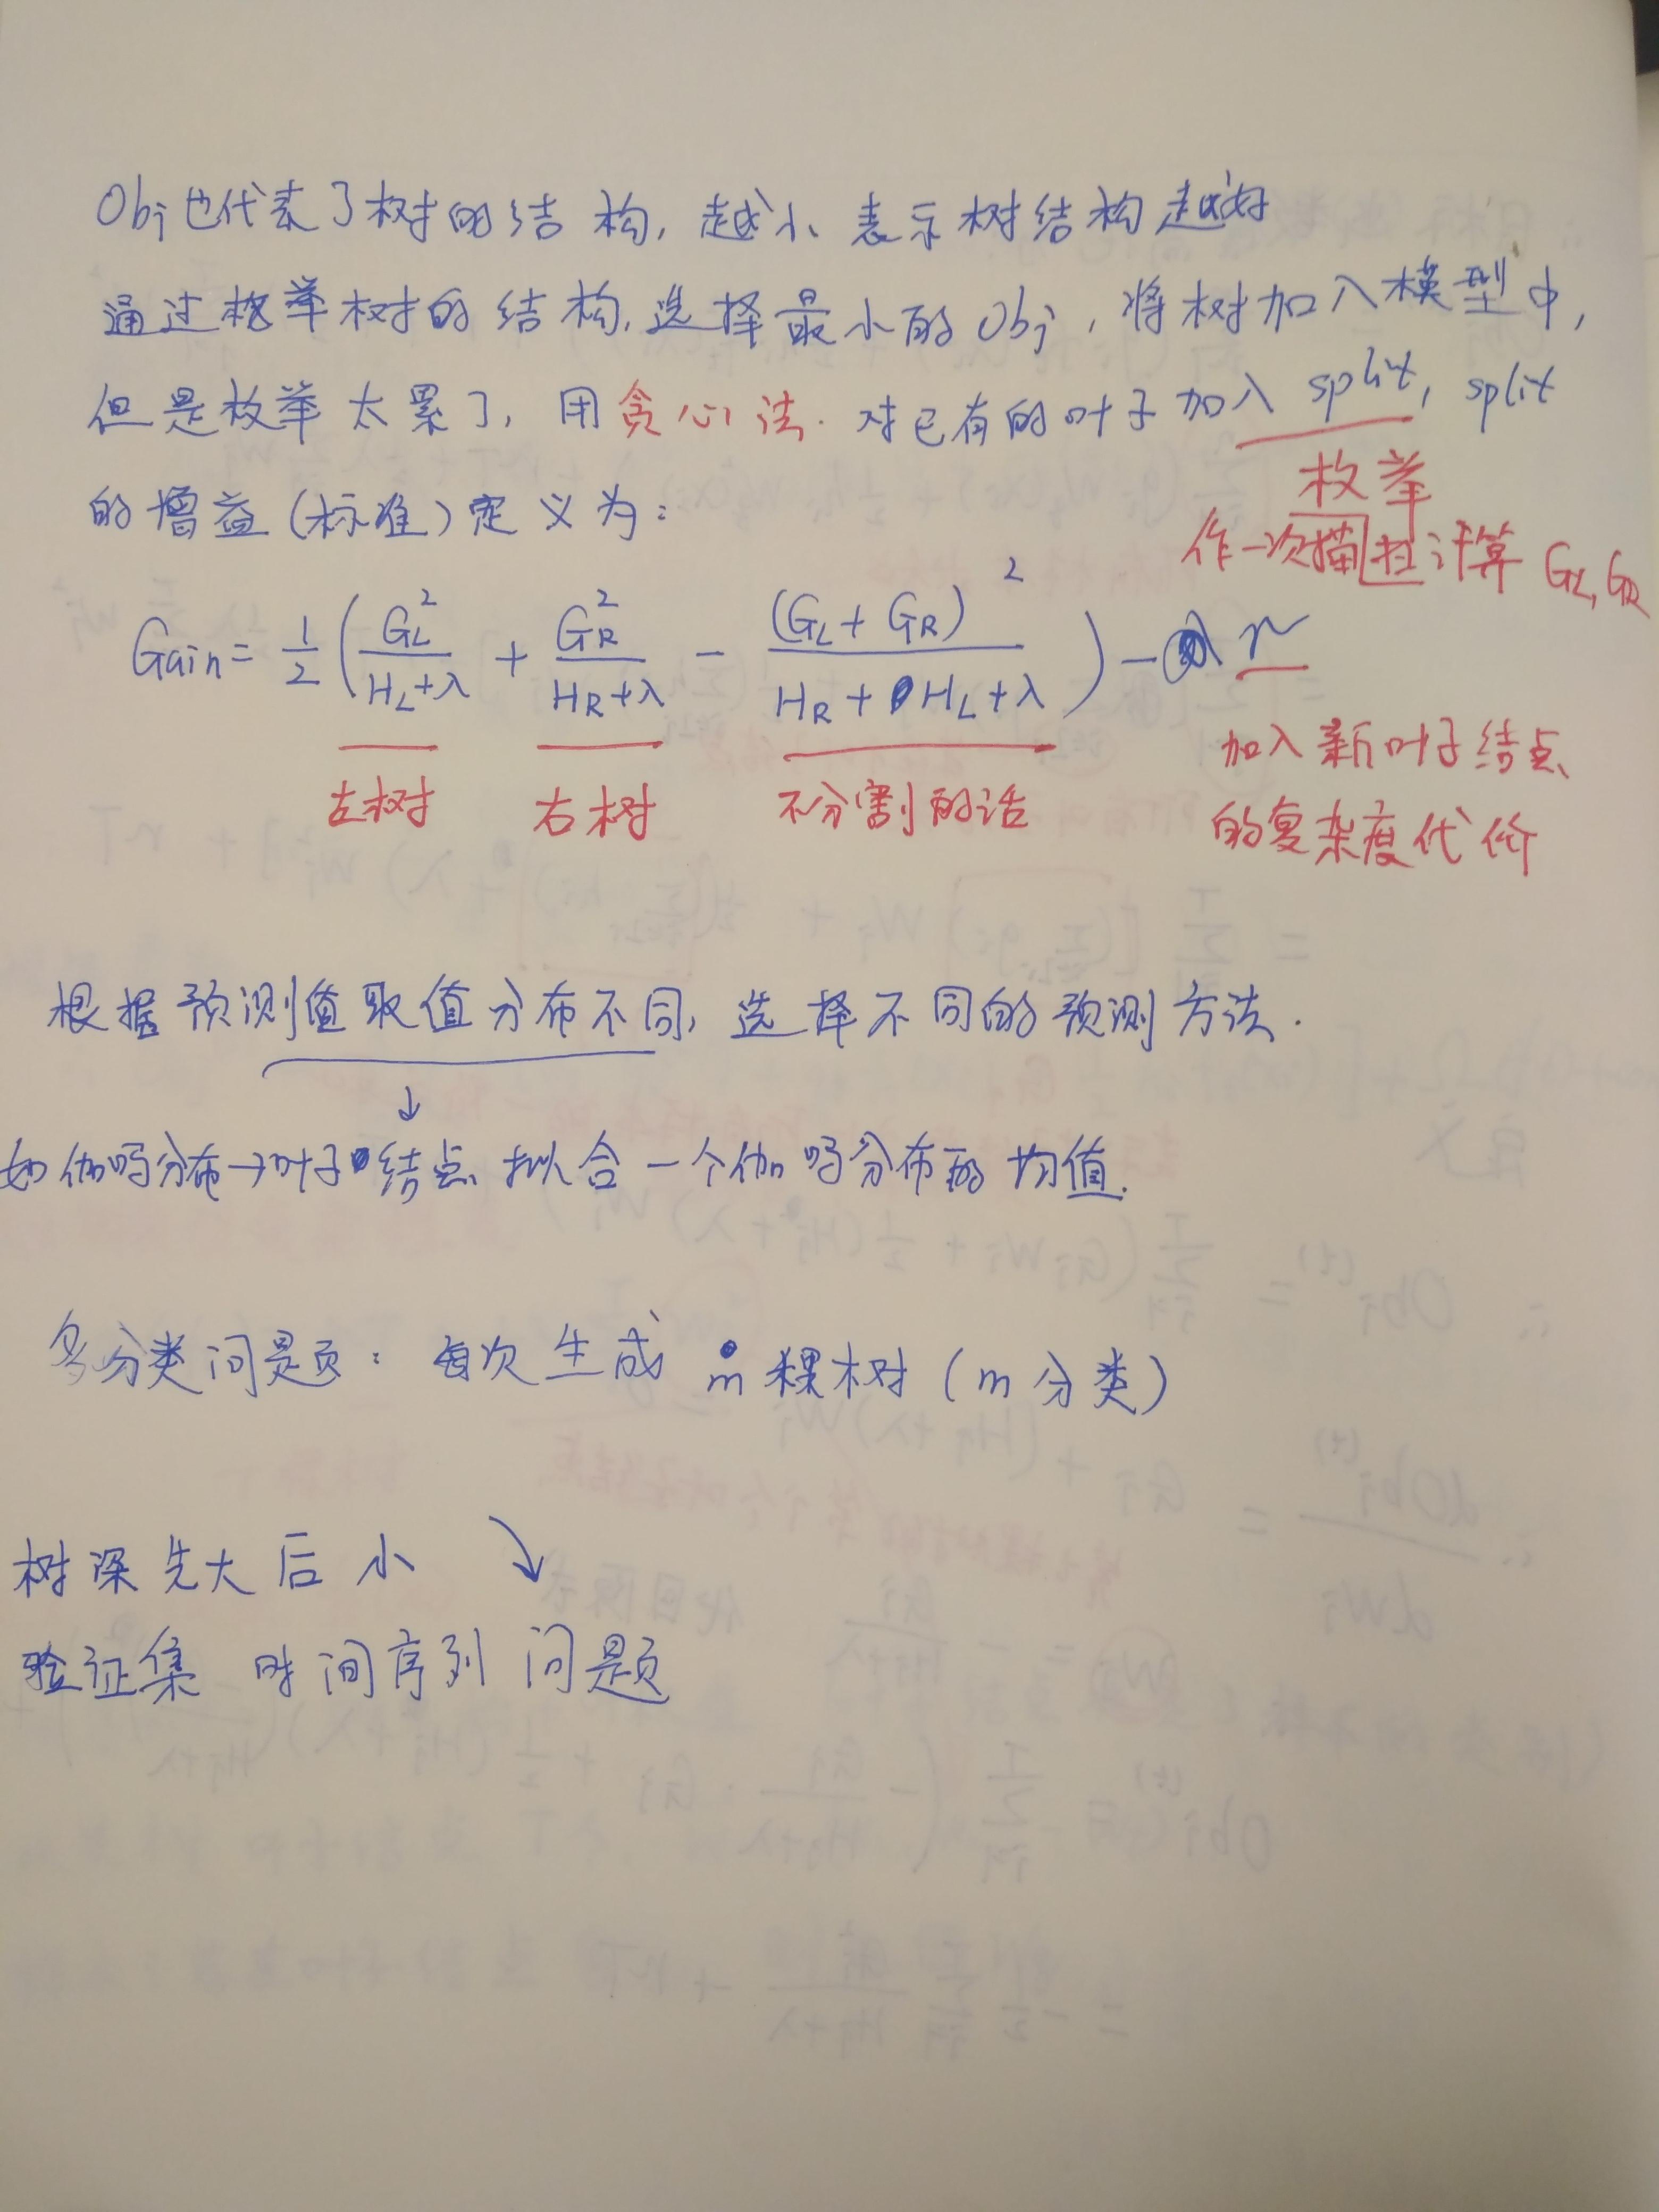 Obj也代表了树的结构, 越小表示树结构越好
通过枚举树的结构, 选择最小的Obj, 将树加入模型中,
但是枚举太累了, 用贪心法. 对已有的叶子加入split, split
枚举
的增益(标准)定义为:
作一次描扫计算 GL, GR
Gain = 1/2 ( GL²/(HL+λ) + GR²/(HR+λ) - (GL+GR)²/(HR+HL+λ) ) - r
左树 右树 不分割的话
加入新叶子结点
的复杂度代价
根据预测值取值分布不同, 选择不同的预测方法.
↓
如伽吗分布→叶子结点拟合一个伽吗分布的均值.
多分类问题: 每次生成 m 棵树 (m分类)
树深先大后小 ↘
验证集 时间序列问题